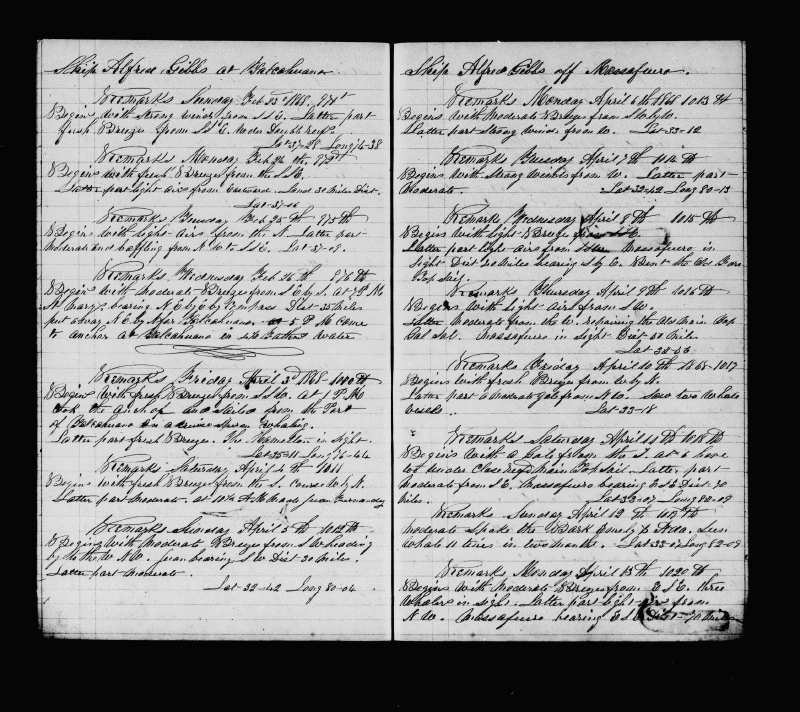 Ship Alfred Gibbs at Talcahuano
Remarks Sunday Feb 23d 1868. 971st
Begins with strong winds from S S E. Latter part
fresh Breeze from S S E. under Double reefs.
Lat 37-28 Long 76-38
Remarks Monday Feb 24 th.
Begins with fresh Breeze from the S S E.
Latter part light airs from Eastward. Land 30 Miles Dist.
Lat 37-06
Remarks Tuesday Feb 25 th 975 th
Begins with light airs from the N. Latter part
Moderate and baffling from N W to S S E. Lat 37-09.
Remarks Wednesday Feb 26 th 976 th
Begins with Moderate Breeze from S E by S. at 7 P M
St Marys bearing N E by E by Compass Dist 35 Miles
put away N E by N for Talcahuano at 5 P M Came
to anchor at Talcahuano in 4½ Fathoms water
Remarks Friday April 3d 1868 1010 th
Begins with fresh Breeze from S S W. at 1 P M
took the anchor and sailed from the Port
of Talcahuano on a cruise sperm whaling.
Latter part fresh Breeze. The Hamilton in sight.
Lat 35-11 Long 76-44
Remarks Saturday April 4 th 1011
Begins with fresh Breeze from the S. Course W by N.
Latter part Moderate. at 10½ A M Made Juan Fernandez
Remarks Sunday April 5 th 1012 th
Begins with Moderate Breeze from S W heading
by to the W N W. Juan bearing S W Dist 30 Miles.
Latter part Moderate.
Lat 32-42 Long 80-04
Ship Alfred Gibbs off Massafuero.
Remarks Monday April 6 th 1868 1013 th
Begins with Moderate Breeze from S W by W.
Latter part Strong winds from W. Lat 33-12
Remarks Tuesday April 7 th 1014 th
Begins with Strong winds from W. Latter part
Moderate. Lat 33-42 Long 80-13
Remarks Wednesday April 8 th 1015 th
Begins with light Breeze from S S E
Latter part light airs from Massafuero in
sight Dist 20 Miles bearing S by E. Bent the Fore
Top Sail.
Remarks Thursday April 9 th 1016 th
Begins with light airs from S W.
Latter Moderate from the W. repairing the old Main Top
Gal Sail. Massafuero in sight Dist 50 Miles
Lat 32-56
Remarks Friday April 10 th 1868 1017
Begins with fresh Breeze from W by N.
Latter part a moderate gale from N W. Saw two Whale
Lat 33-18
Remarks Saturday April 11 th 1018 th
Begins with a Gale from the S. at 6 hove
to under Close reefd Main Top Sail. Latter part
Moderate from S E. Massafuero bearing E S E Dist 70
Miles. Lat 33-07 Long 82-09
Remarks Sunday April 12 th 1019 th
Moderate Spoke the Bark Seen
whale 11 times in two months. Lat 33-07 Long 82-09
Remarks Monday April 13 th 1020 th
Begins with Moderate Breeze from E S E. three
Whalers in sight. Latter part light airs from
N W. Massafuero bearing E S E Dist 70 Miles